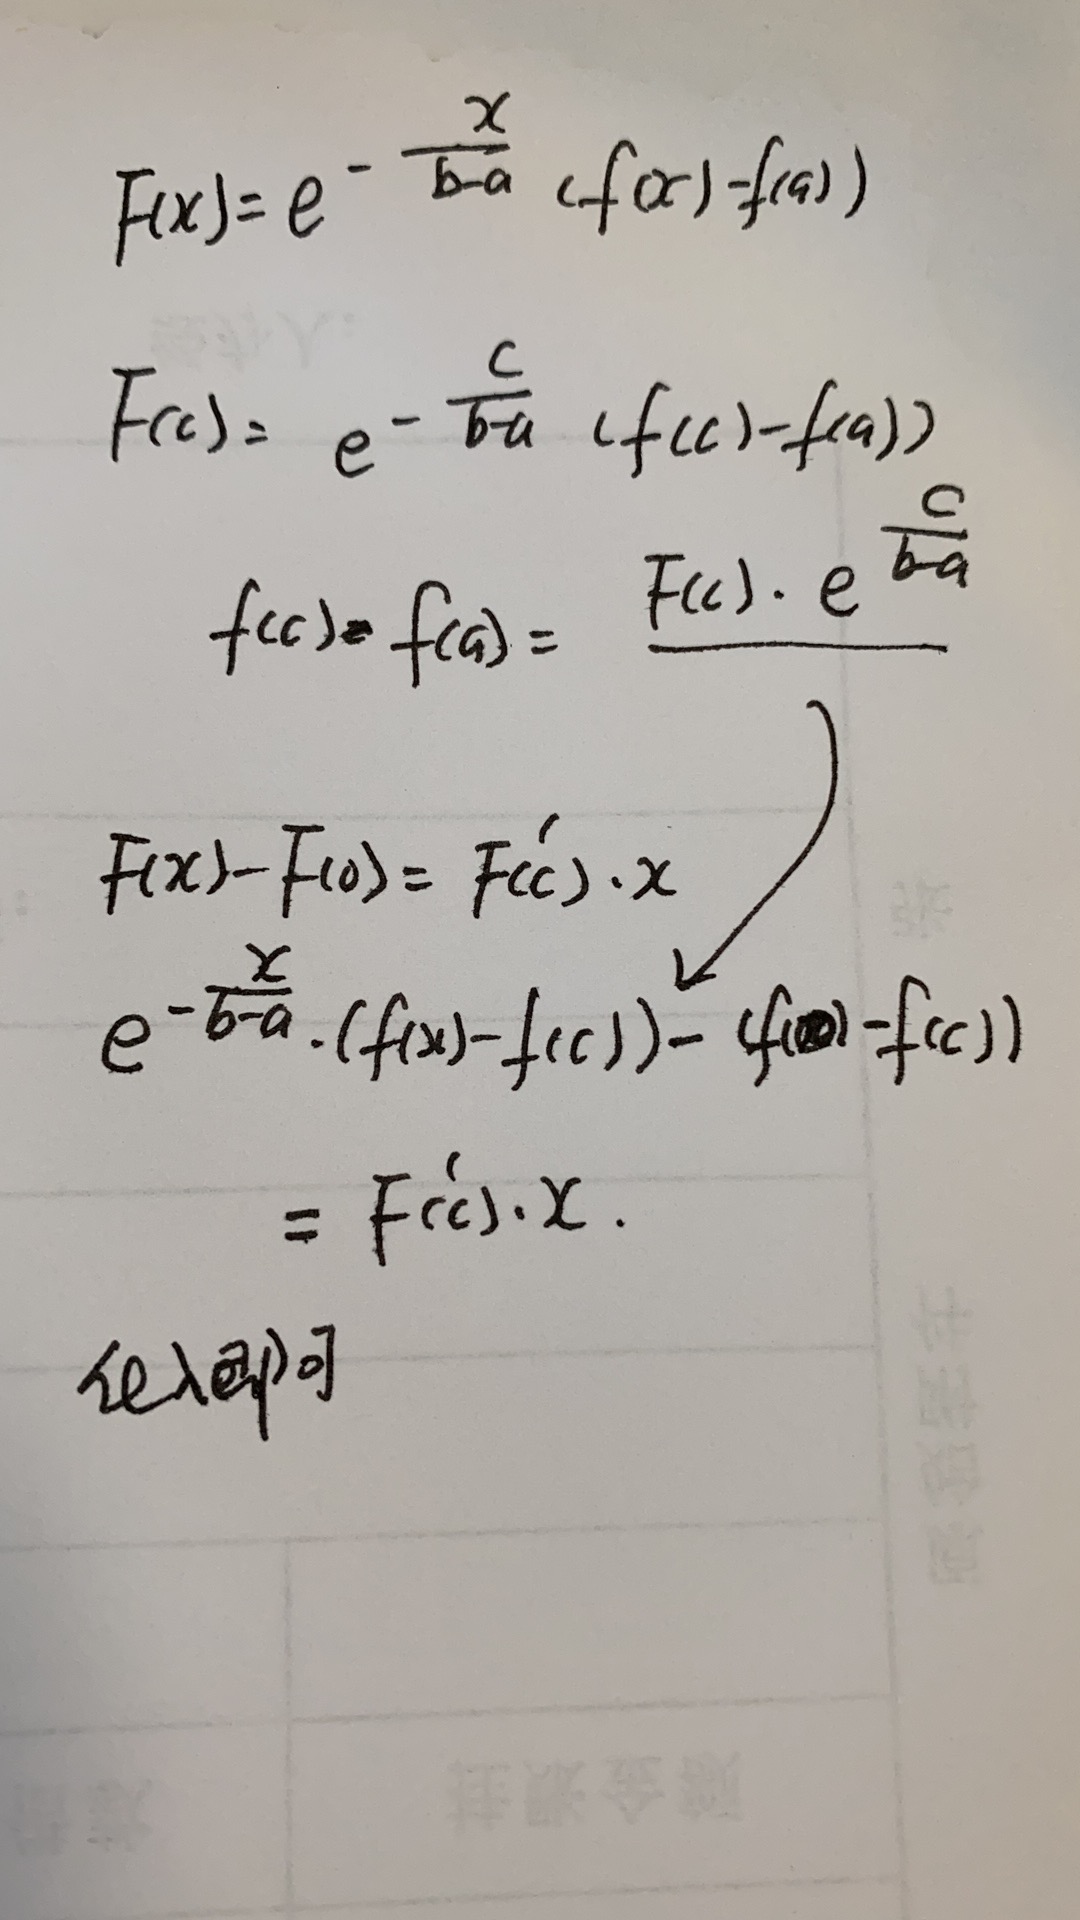 F(x) = e^{-\frac{x}{b-a}} (f(x) - f(a))
F(c) = e^{-\frac{c}{b-a}} (f(c) - f(a))
f(c) - f(a) = F(c) · e^{\frac{c}{b-a}}
F(x) - F(0) = F'(c) · x
e^{-\frac{x}{b-a}} · (f(x) - f(c)) - (f(0) - f(c))
= F'(c) · x .
代入即可